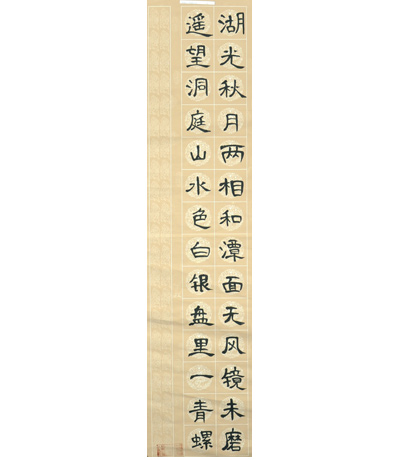 湖光秋月两相和潭面无风镜未磨
遥望洞庭山水色白银盘里一青螺